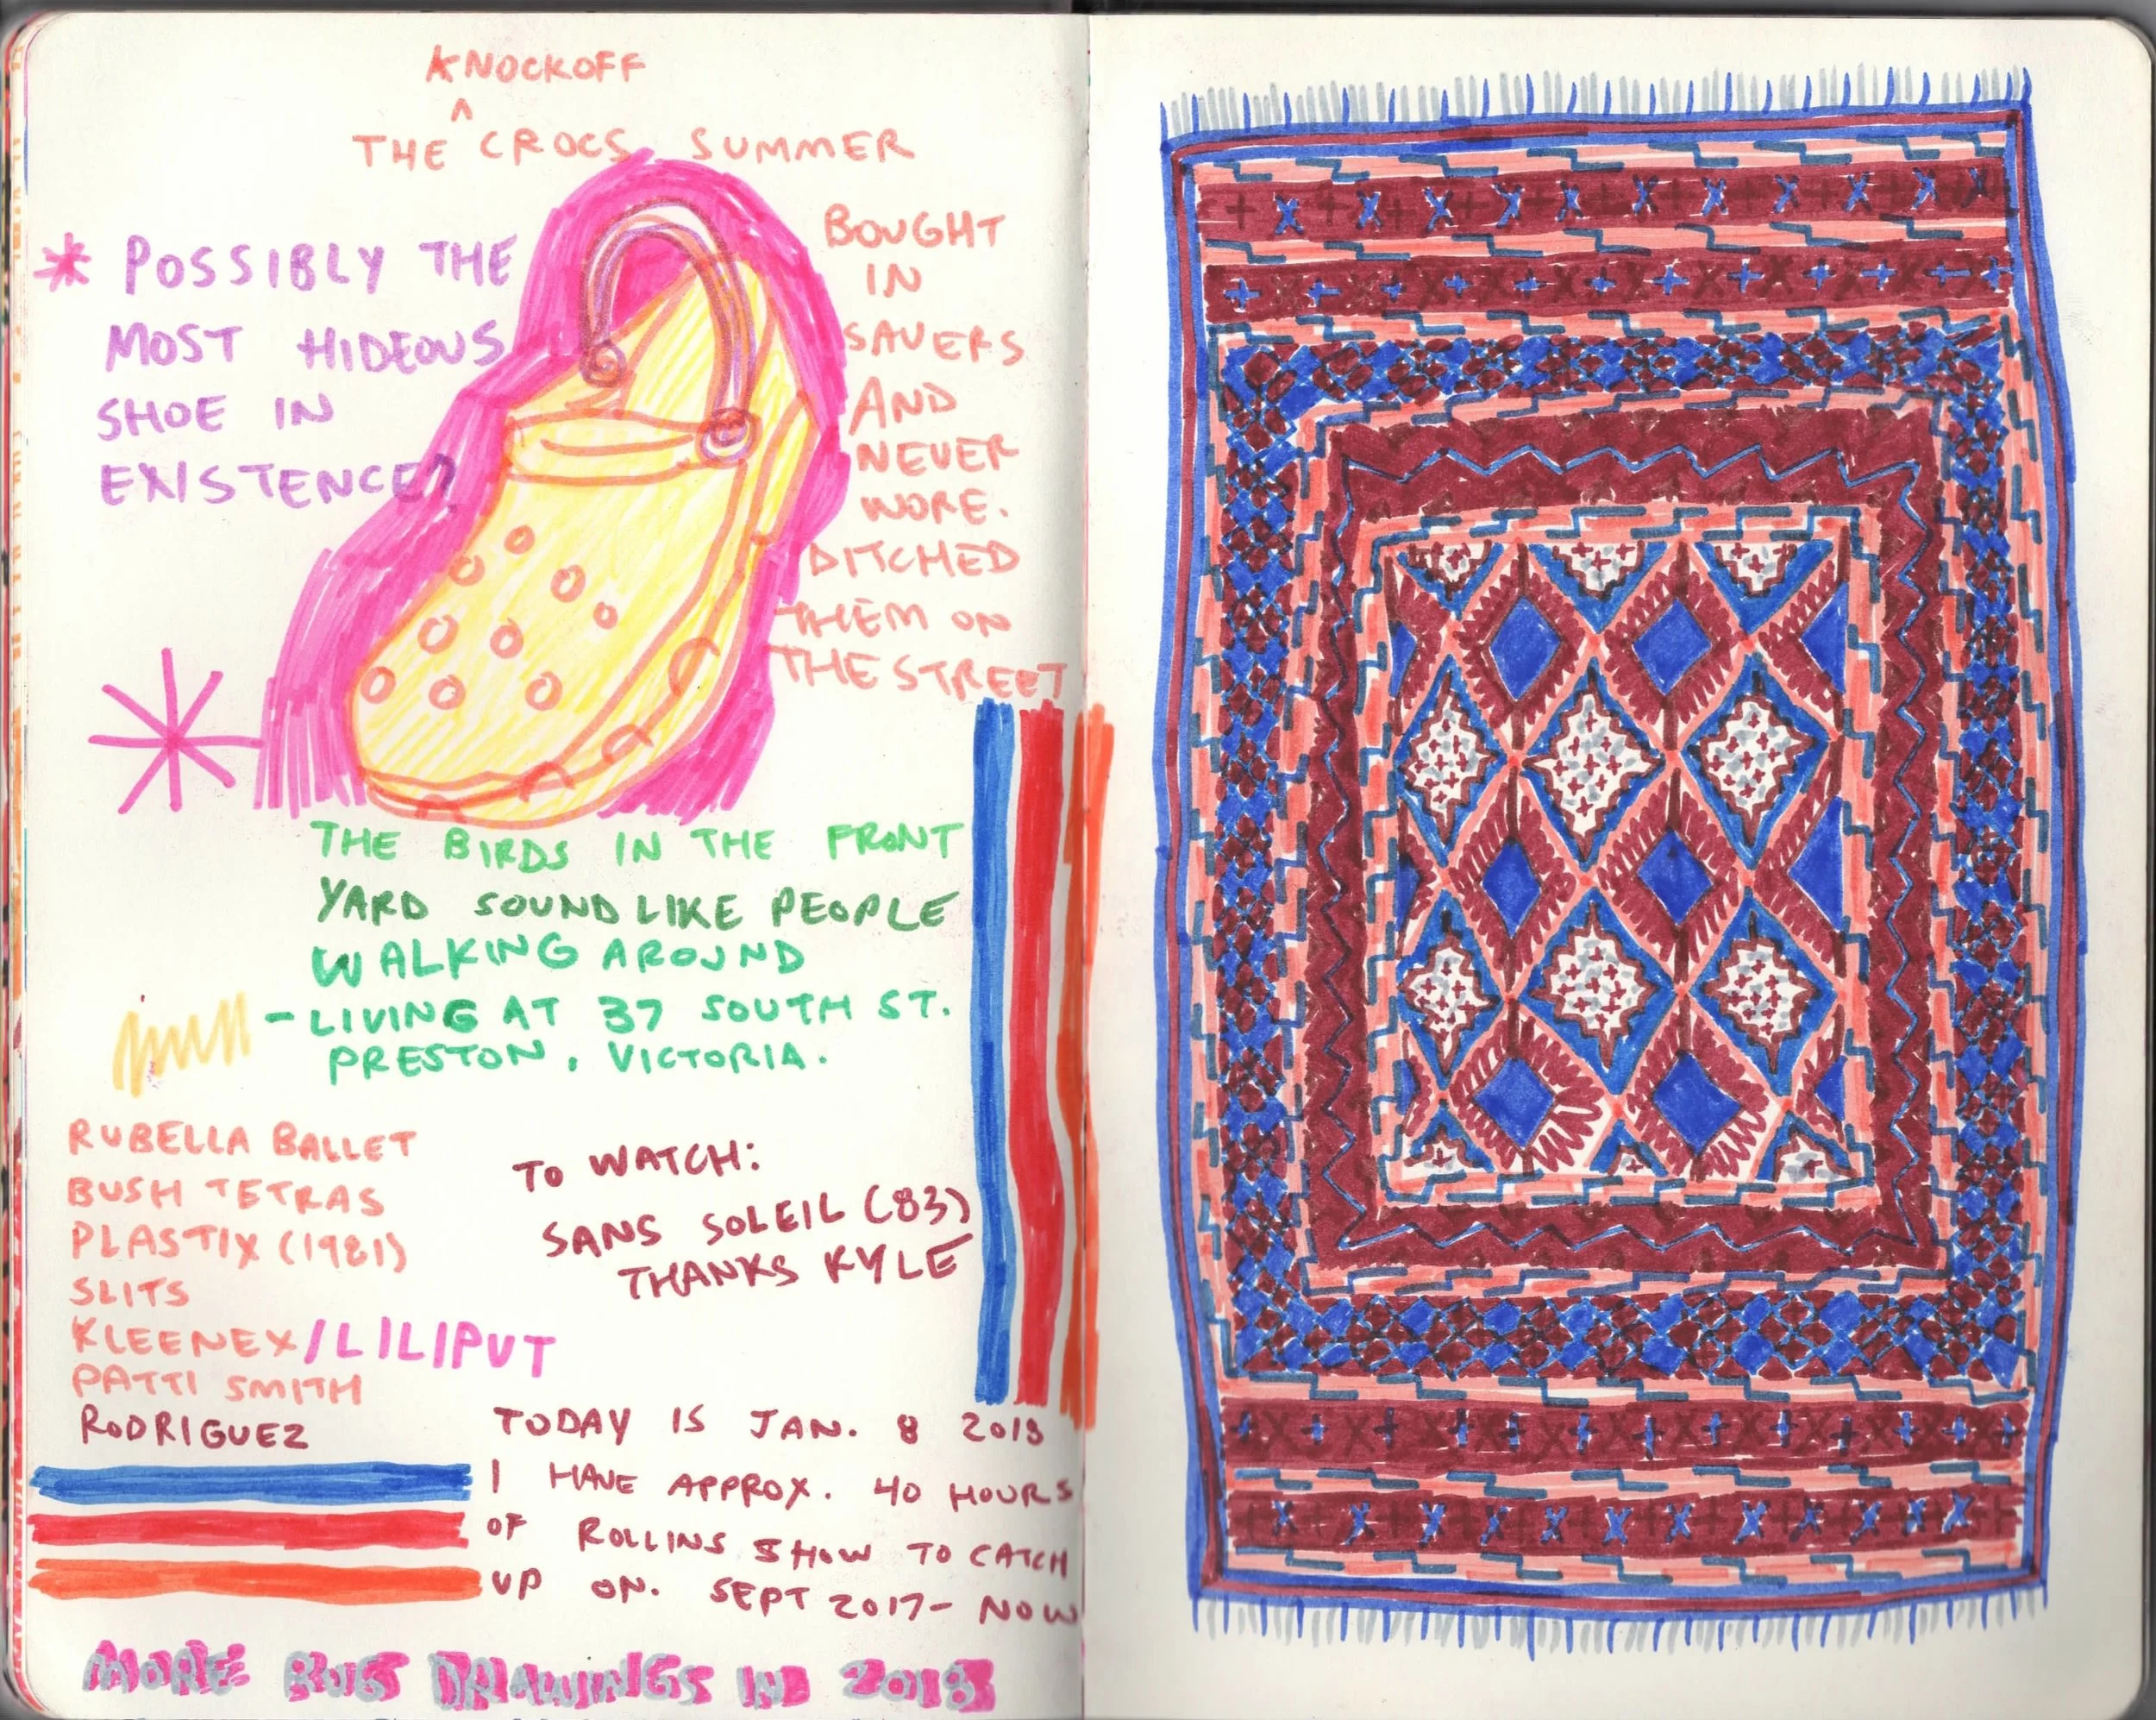 KNOCKOFF
^
THE CROCS SUMMER
* POSSIBLY THE
MOST HIDEOUS
SHOE IN
EXISTENCE?
BOUGHT
IN
SAVERS
AND
NEVER
WORE.
DITCHED
THEM ON
THE STREET
THE BIRDS IN THE FRONT
YARD SOUND LIKE PEOPLE
WALKING AROUND
- LIVING AT 37 SOUTH ST.
PRESTON, VICTORIA.
RUBELLA BALLET
BUSH TETRAS
PLASTIX (1981)
SLITS
KLEENEX/LILIPUT
PATTI SMITH
RODRIGUEZ
TO WATCH:
SANS SOLEIL (83)
THANKS KYLE
TODAY IS JAN. 8 2018
I HAVE APPROX. 40 HOURS
OF ROLLINS SHOW TO CATCH
UP ON. SEPT 2017- NOW
MORE RUG DRAWINGS IN 2018